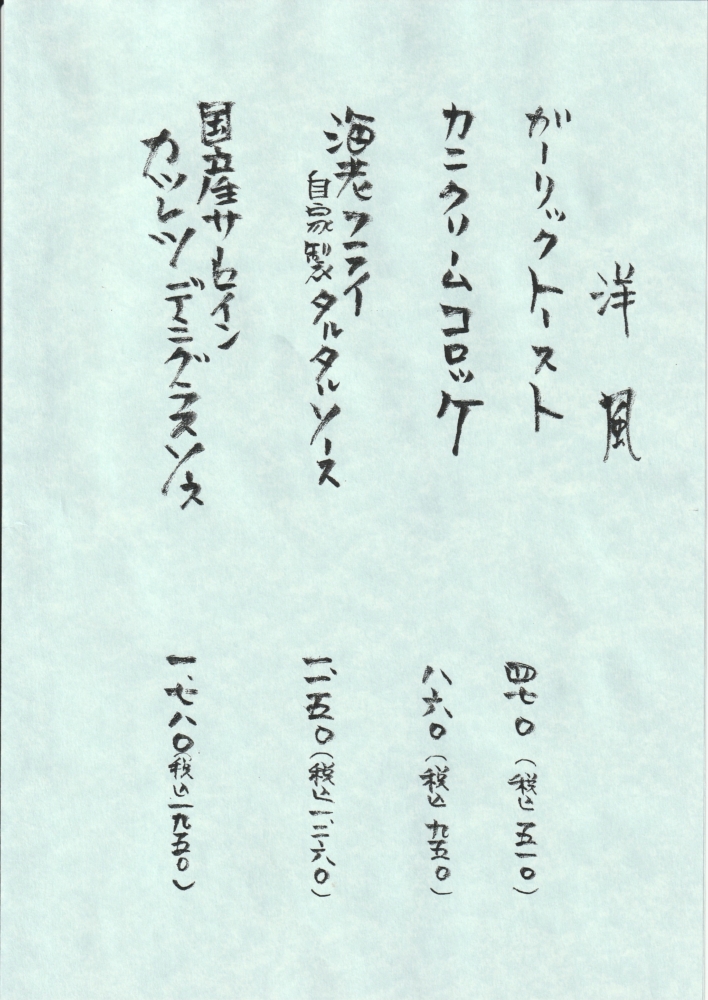 洋風
ガーリックトースト 四七〇(税込 五一〇)
カニクリームコロッケ 八六〇(税込 九五〇)
海老フライ
自家製タルタルソース 一、一五〇(税込 一、二六〇)
国産サーロイン
カツレツ デミグラスソース 一、七八〇(税込 一九五〇)